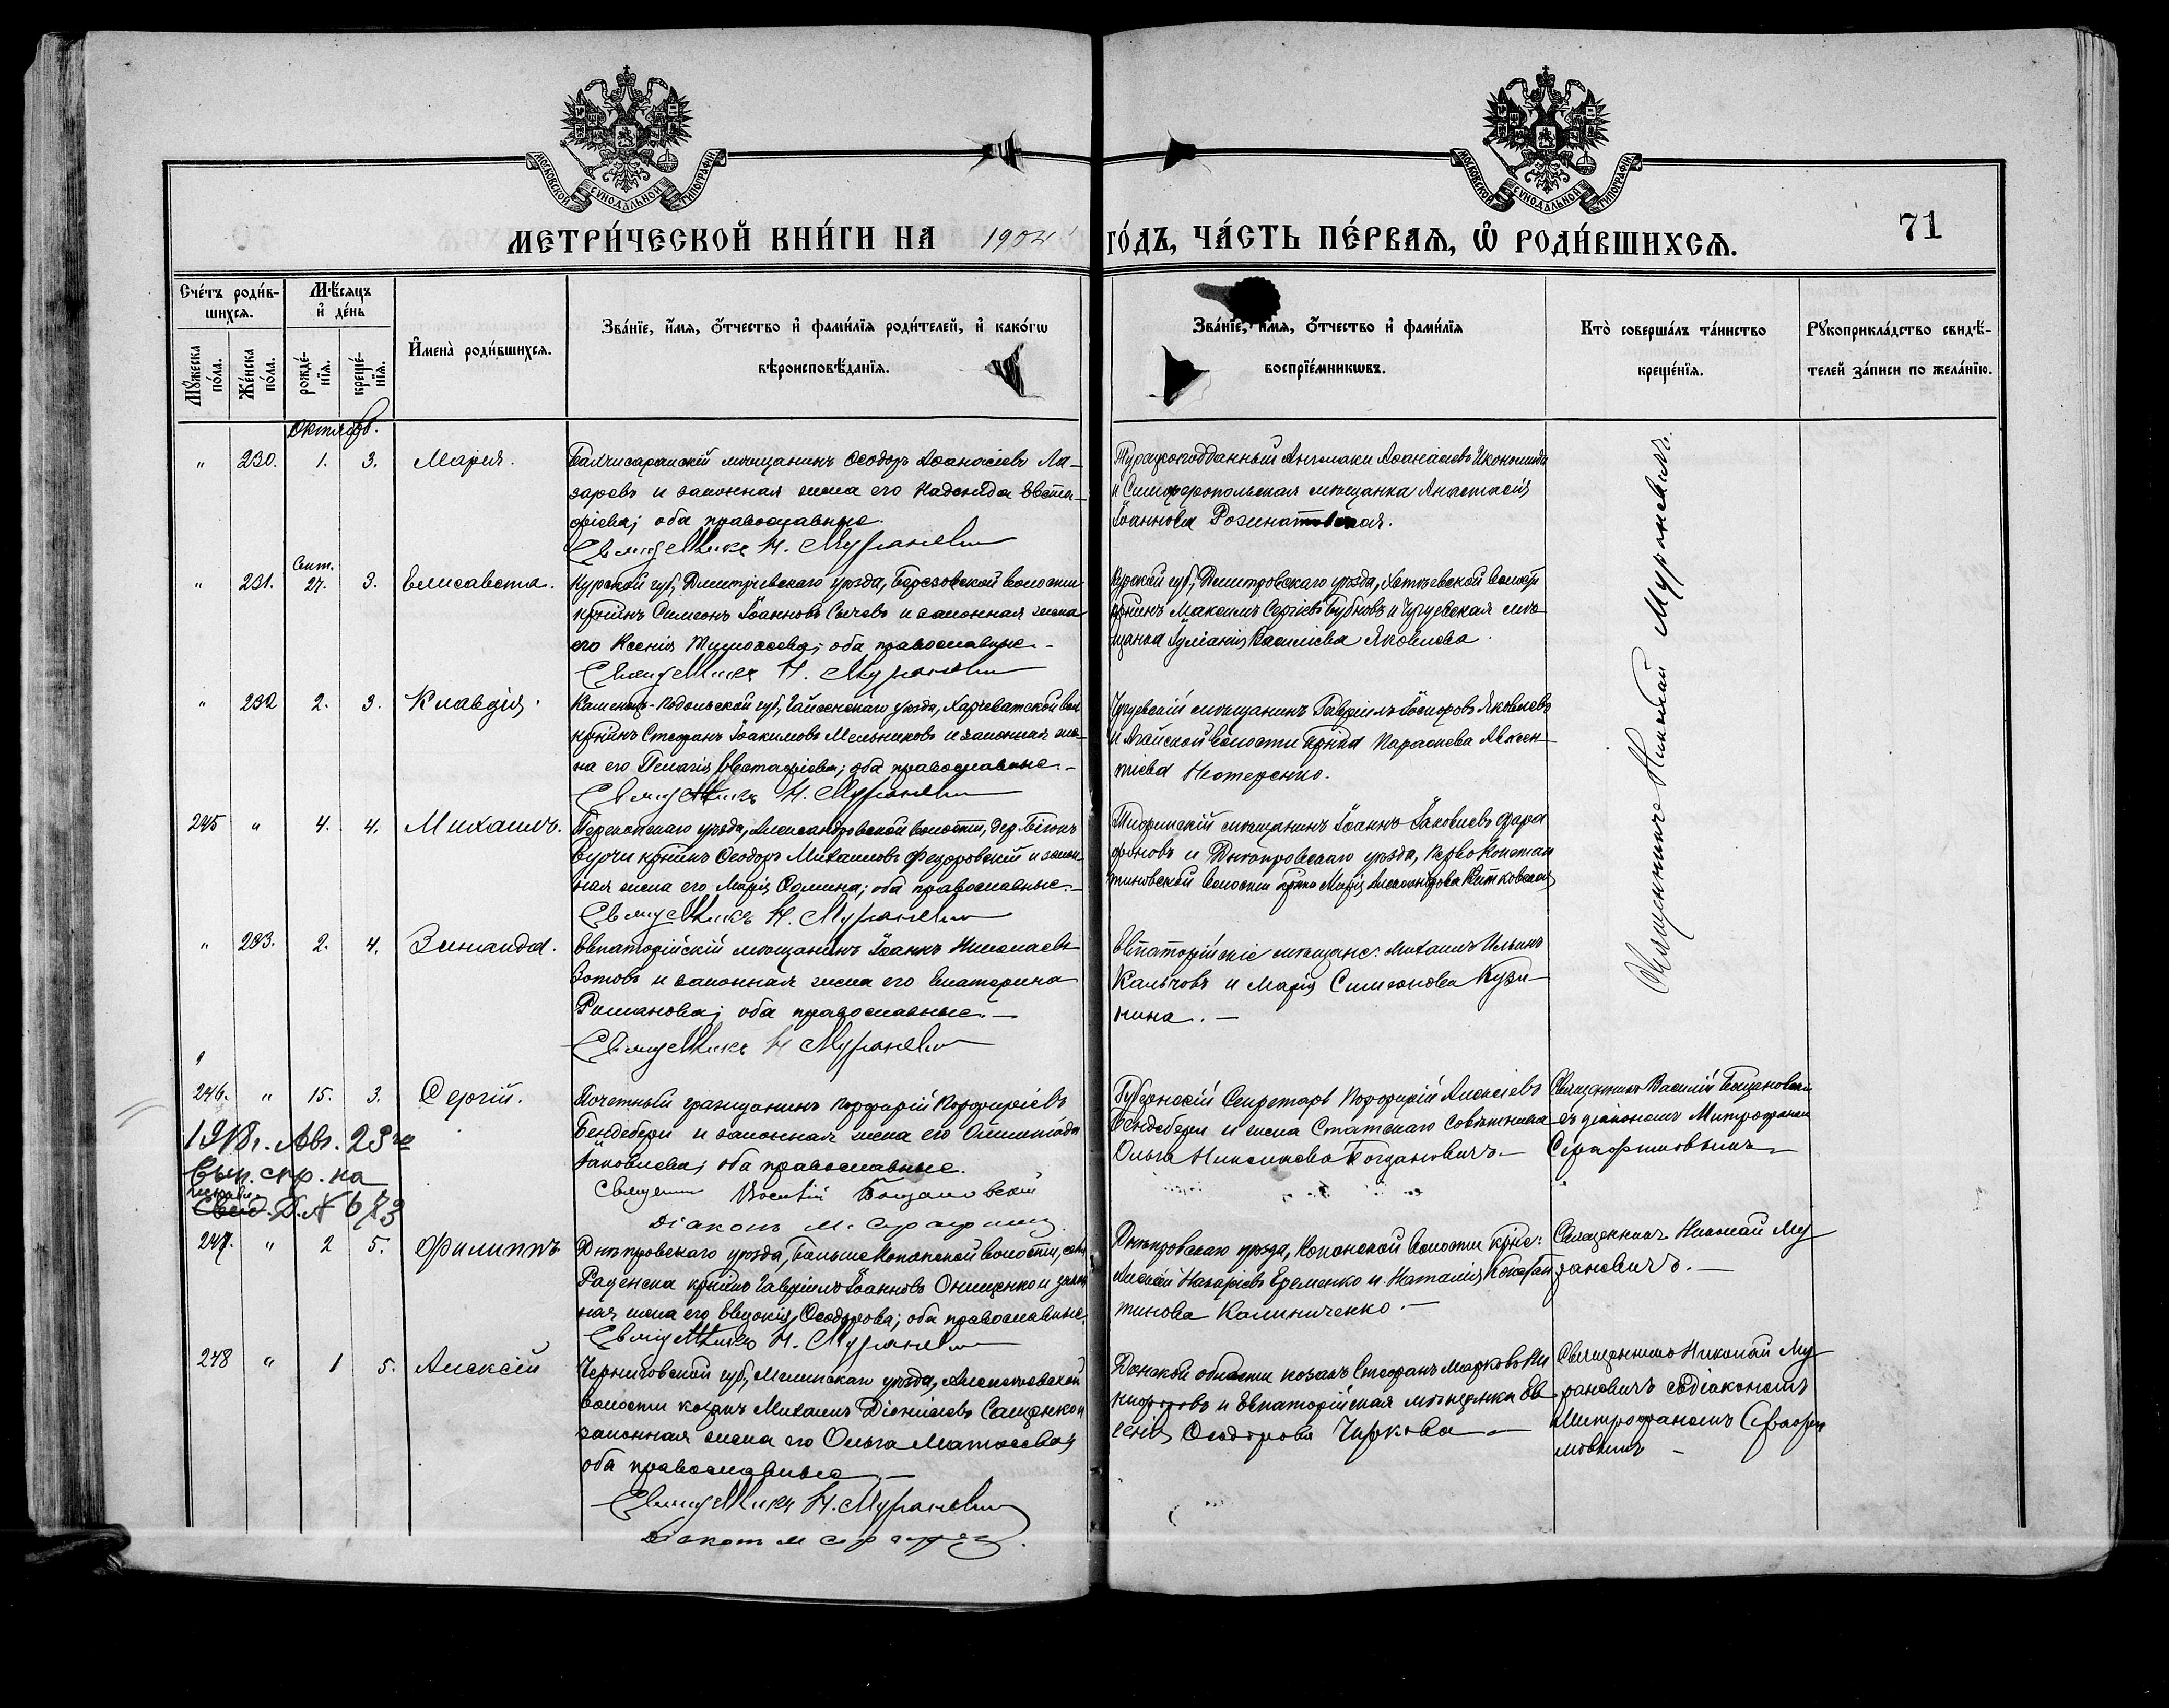 МОСКОВСКОЙ СѴНОДАЛЬНОЙ ТИПОГРАФІИ
МОСКОВСКОЙ СѴНОДАЛЬНОЙ ТИПОГРАФІИ
МЕТРИ́ЧЕСКОЙ КНИ́ГИ НА 1904 ГО́ДЪ, ЧА́СТЬ ПЕ́РВАЯ, Ѽ РОДИ́ВШИХСЯ.
71
Сче́тъ роди́в-
шихся.
Мѣ́сяцъ
и҆ де́нь
Мꙋ́жеска по́ла.
Же́нска по́ла.
рожде́-
нїя.
креще́-
нїя.
И҆мена̀ роди́вшихся.
Зва́нїе, и҆́мя, ѻ҆́тчество и҆ фами́лїя роди́телей, и҆ како́гѡ
вѣроисповѣ́данїя.
Зва́нїе, и҆́мя, ѻ҆́тчество и҆ фами́лїя
воспрїе́мникѡвъ.
Кто̀ соверша́лъ та́инство
креще́нїя.
Рꙋкоприкла́дство свидѣ́-
телей за́писи по жела́нїю.
Октябрь.
" 230. 1. 3. Марія.
Бахчисарайскій мѣщанинъ Ѳеодоръ Аѳанасіевъ Ла-
заревъ и законная жена его Надежда Евста-
фіева; оба православные.
Священникъ Н. Мураневичъ
Турецкоподданный Ангелаки Аѳанасіевъ Икономиди
и Симферопольская мѣщанка Анастасія
Іоаннова
Священникъ Николай Мураневичъ.
" 231. Сент. 27. 3. Елисавета.
Курской губ., Дмитріевскаго уѣзда, Березовской волости
кр-нинъ Симеонъ Іоанновъ Сычевъ и законная жена
его Ксенія Тимоѳеева; оба православные.-
Священникъ Н. Мураневичъ
Курской губ., Дмитровскаго уѣзда,
кр-нинъ Максимъ Сергіевъ Бубновъ и Чугуевская мѣ-
щанка Іуліанія Василіева Яковлева.
" 232 2. 3. Клавдія.
Каменецъ-Подольской губ., Гайсенскаго уѣзда,
кр-нинъ Стефанъ Іоакимовъ Мельниковъ и законная же-
на его Пелагія Евстафіева; оба православные.-
Священникъ Н. Мураневичъ
Чугуевскій мѣщанинъ Гавріилъ Іосифовъ Яковлевъ
и Агайской волости кр-нка Параскева Авксен-
тіева Нестеренко.
245 " 4. 4. Михаилъ.
Перекопскаго уѣзда, Александровской волости, дер. Біюкъ
Бурчи кр-нинъ Ѳеодоръ Михаиловъ Федоровскій и закон-
ная жена его Марія Ѳомина; оба православные.-
Священникъ Н. Мураневичъ
мѣщанинъ Іоаннъ Іаковлевъ Фара
фоновъ и Днѣпровскаго уѣзда, Первоконстан
тиновской волости кр-нка Марія Александрова
" 233. 2. 4. Зинаида.
Евпаторійскій мѣщанинъ Іоаннъ Николаевъ
Зотовъ и законная жена его Екатерина
Романова; оба православные.-
Священникъ Н. Мураневичъ
Евпаторійскіе мѣщане: Михаилъ Ильинъ
Калычовъ и Марія Симеонова Кузь-
мина.-
246. " 15. 3. Сергій.
Почетный гражданинъ Порфирій Порфиріевъ
Бендебери и законная жена его
Іаковлева; оба православные.
Священникъ Василій Бощановскій
Діаконъ М. Серафимовъ
Губернскій Секретарь Порфирій Алексіевъ
Бендебери и жена Статскаго Совѣтника
Ольга Николаева Богдановичъ.-
Священникъ Василій Бощановскій
съ діакономъ Митрофаномъ
Серафимовымъ
1918г. Авг. 23го
Вып. спр. на
Д. № 673
247. " 2 5. Филиппъ
Днѣпровскаго уѣзда, Больше Копанской волости, села
Раденска кр-нинъ Гавріилъ Іоанновъ Онищенко и закон
ная жена его Евдокія Ѳеодорова; оба православные.
Священникъ Н. Мураневичъ
Днѣпровскаго уѣзда, Копанской волости кр-не:
Алексій Назаріевъ Еременко и Наталія Констан
тинова Калиниченко.-
Священникъ Николай Му
раневичъ.-
248 " 1 5. Алексій
Черниговской губ., уѣзда,
волости козакъ Михаилъ Діонисіевъ Сащенко и
законная жена его Ольга Матѳеева;
оба православные.-
Священникъ Н. Мураневичъ
Діаконъ М Серафимовъ
Донской области козакъ Стефанъ Марковъ Ни
кифоровъ и Евпаторійская мѣщанка Ев
генія Ѳеодорова Чиркова.-
Священникъ Николай Му
раневичъ съ діакономъ
Митрофаномъ Серафи
мовымъ -